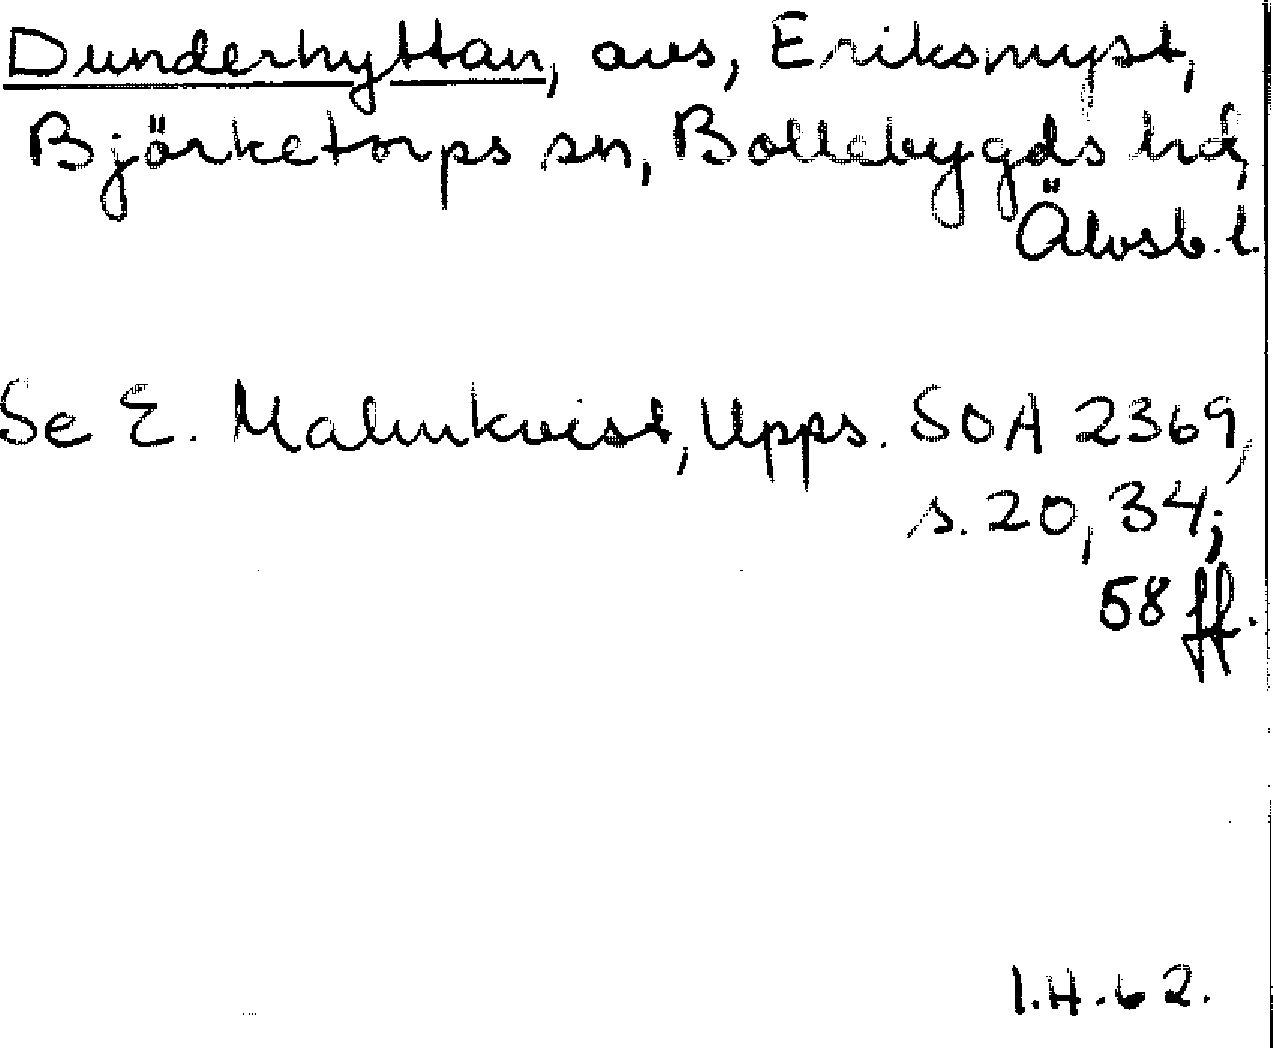 Dunderhyttan, avs, Eriksmyst,
Björketorps sn, Bollebygds hd,
Älvsb. l.
Se E. Malmkvist, Upps. SOA 2369,
s. 20, 34;
58 ff.
I.H. 62.